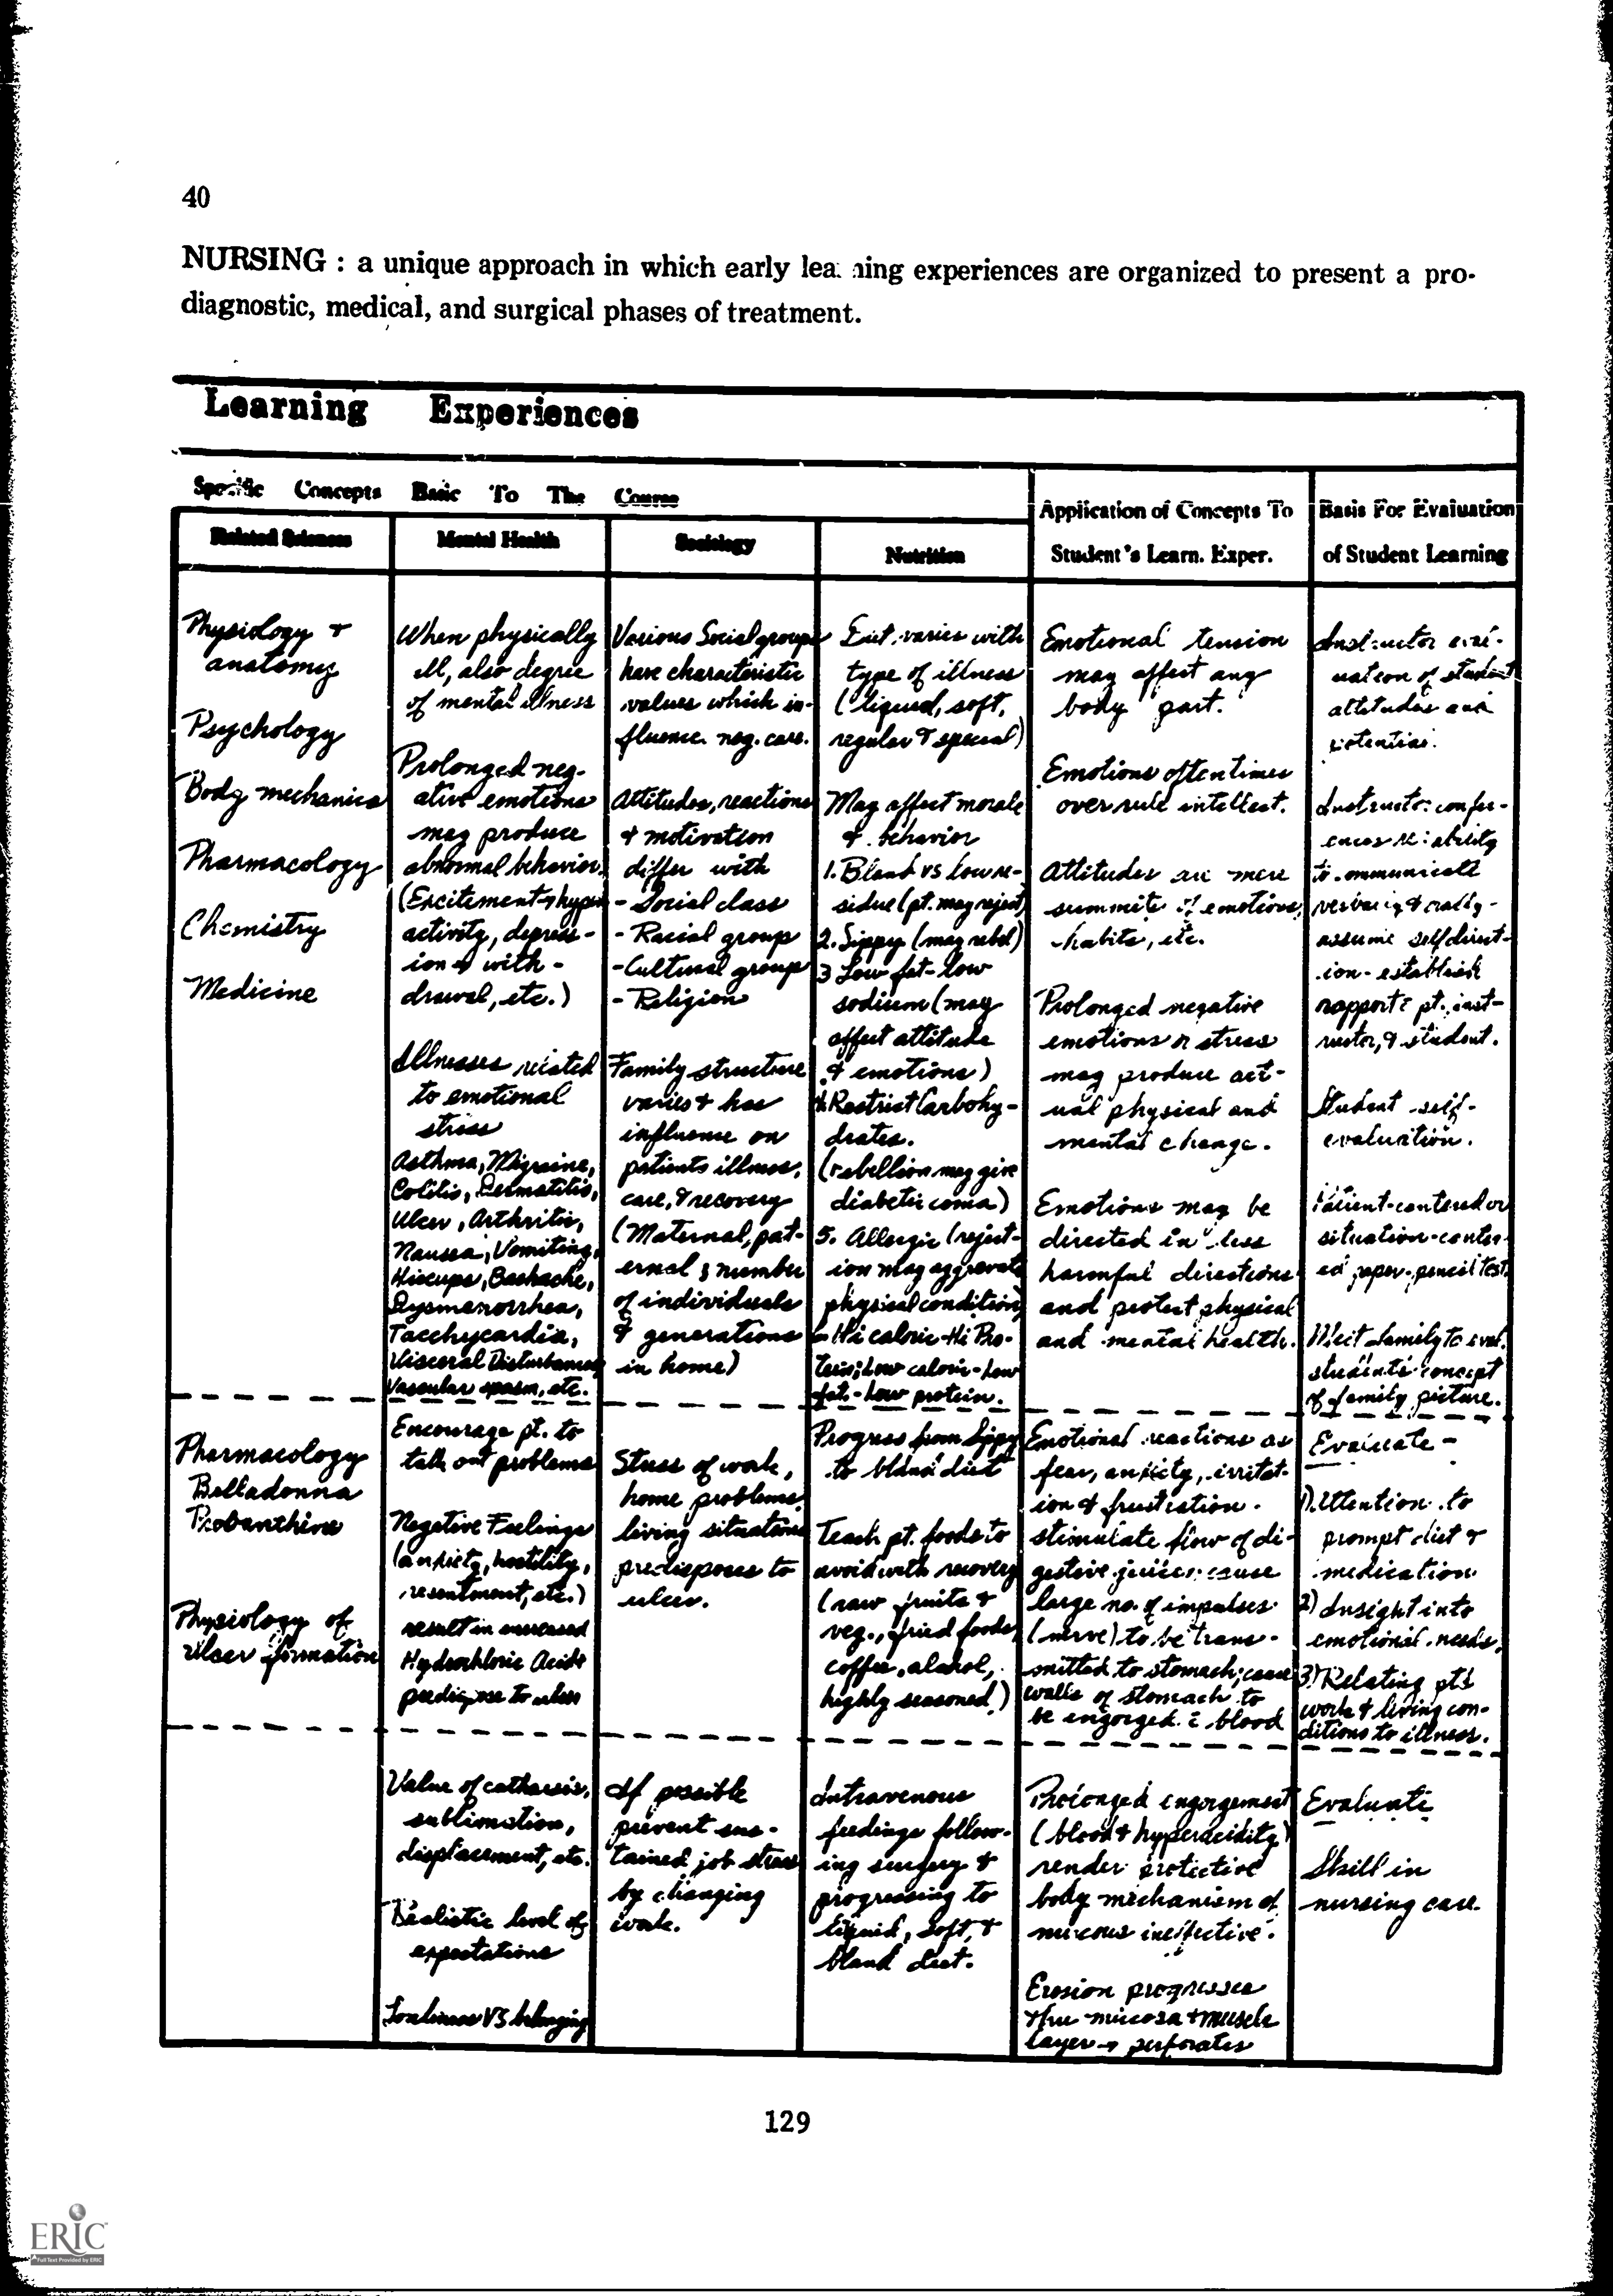 40
NURSING : a unique approach in which early lea ning experiences are organized to present a pro-
diagnostic, medical, and surgical phases of treatment.
Learning Experiences
Specific Concepts Basic To The Course
Related Sciences
Mental Health
Sociology
Nutrition
Application of Concepts To
Student's Learn. Exper.
Basis For Evaluation
of Student Learning
Physiology &
anatomy
Psychology
Body mechanics
Pharmacology
Chemistry
Medicine
When physically
ill, also degree
of mental illness
Prolonged neg-
ative emotions
may produce
abnormal behavior
(Excitement → hyper
activity, depress-
ion → with-
drawal, etc.)
Illnesses related
to emotional
stress
Asthma, Migraine,
Colitis, Dermatitis,
Ulcer, Arthritis,
Nausea, Vomiting,
Hiccups, Backache,
Dysmenorrhea,
Tacchycardia,
Visceral Disturbances
Vascular spasm, etc.
Various Social groups
have characteristic
values which in-
fluence neg. care.
Attitudes, reactions
& motivation
differ with
- Social class
- Racial group
- Cultural group
- Religion
Family structure
varies & has
influence on
patients illness,
care, & recovery
(Maternal, pat-
ernal & number
of individuals
& generations
in home)
Diet varies with
type of illness
(liquid, soft,
regular & special)
May affect morale
& behavior
1. Bland vs low re-
sidue (pt. may reject)
2. Sippy (may rebel)
3 Low fat-low
sodium (may
affect attitude
& emotions)
4. Restrict Carbohy-
drates.
(rebellion may give
diabetic coma)
5. Allergic (reject-
ion may aggravate
physical condition)
6- Hi caloric-Hi Pro-
tein; Low caloric-low
fat-low protein.
Emotional tension
may affect any
body part.
Emotions oftentimes
over rule intellect.
Attitudes are mere
summits of emotions,
habits, etc.
Prolonged negative
emotions or stress
may produce act-
ual physical and
mental change.
Emotions may be
directed in less
harmful directions
and protect physical
and mental health.
Instructor eval-
uation of student
attitudes and
potential.
Instructor confer-
ences re: ability
to communicate
verbally & orally-
assume self direct-
ion - establish
rapport c̄ pt., inst-
ructor, & student.
Student self-
evaluation.
Patient-centered or
situation-center-
ed paper-pencil test.
Meet family to eval.
students concept
of family picture.
Pharmacology
Belladonna
Probanthine
Physiology of
Ulcer formation
Encourage pt. to
talk out problems
Negative Feelings
(anxiety, hostility,
resentment, etc.)
result in increased
Hydrochloric Acid &
predispose to ulcer
Stress of work,
home problems,
living situations
predisposes to
ulcer.
Progress from Sippy
to bland diet
Teach pt. foods to
avoid with recovery
(raw fruits &
veg., fried foods,
coffee, alcohol,
highly seasoned.)
Emotional reactions as
fear, anxiety, irritat-
ion & frustration
stimulate flow of di-
gestive juices; cause
large no. of impulses
(nerve) to be trans-
mitted to stomach; cause
walls of stomach to
be engorged c̄ blood
Evaluate -
1) Attention to
prompt diet &
medication
2) Insight into
emotional needs.
3) Relating pt's
work & living con-
ditions to illness.
Value of catharsis,
sublimation,
displacement, etc.
Realistic level of
expectations
Loneliness VS belonging
If possible
prevent sus-
tained job stress
by changing
work.
Intravenous
feedings follow-
ing surgery &
progressing to
liquid, soft, &
bland diet.
Prolonged engorgement
(blood & hyperacidity)
render protective
body mechanism of
mucous ineffective.
Erosion progresses
thru mucosa & muscle
layer → perforates
Evaluate
Skill in
nursing care.
129
ERIC
Full Text Provided by ERIC